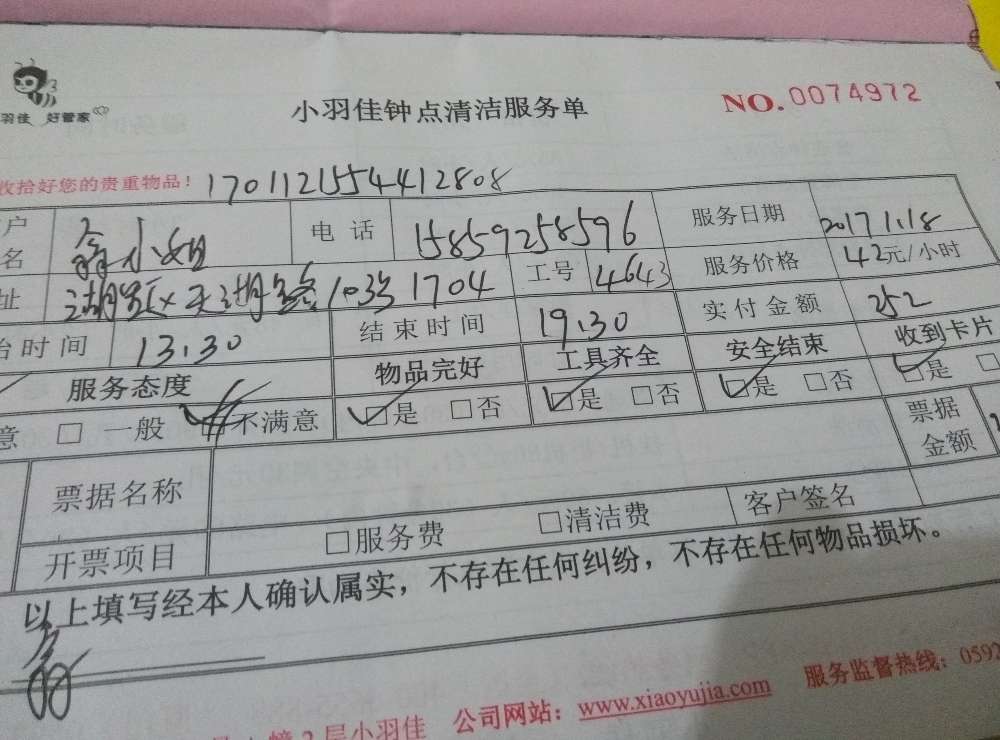 羽佳 好管家
小羽佳钟点清洁服务单
NO.0074972
收拾好您的贵重物品! 1701121554412808
户名 鑫小姐 电话 15859258596 服务日期 2017 1.18
址 天湖 1704 工号 4643 服务价格 42元/小时
时间 13.30 结束时间 19.30 实付金额 252
服务态度 物品完好 工具齐全 安全结束 收到卡片
意 □ 一般 不满意 □是 □否 □是 □否 □是 □否 □是 □
票据名称 票据金额
开票项目 □服务费 □清洁费 客户签名
以上填写经本人确认属实，不存在任何纠纷，不存在任何物品损坏。
2层小羽佳 公司网站：www.xiaoyujia.com 服务监督热线：0592